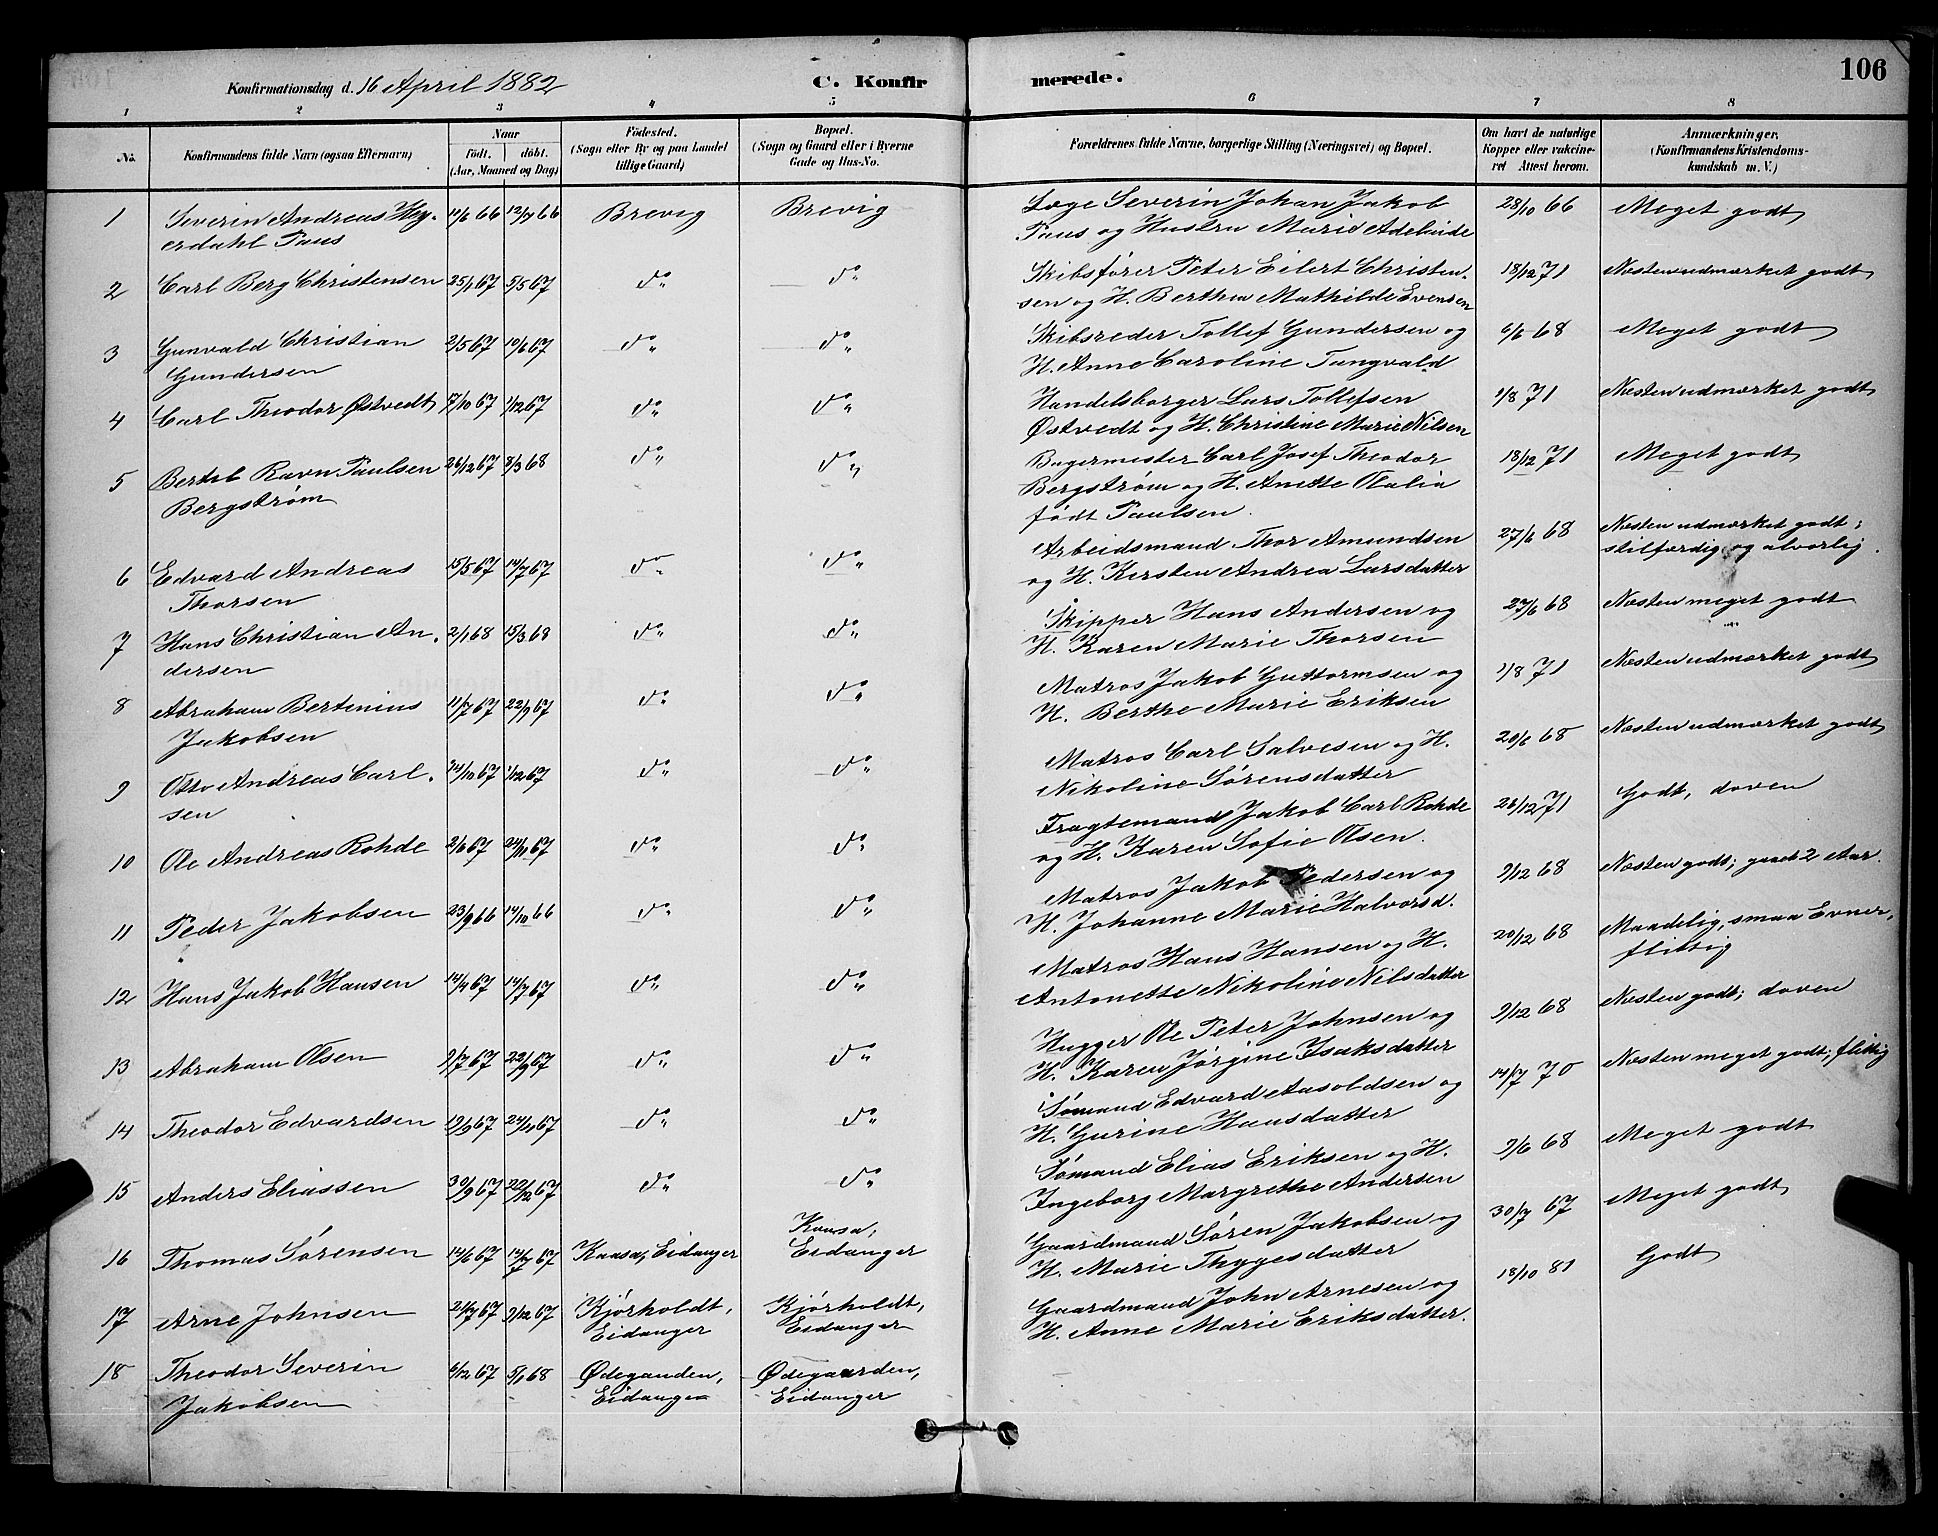 Konfirmationsdag d. 16 April 1882
C. Konfirmerede.
106
1 2 3 4 5 6 7 8
No.
Konfirmandens fulde Navn (ogsaa Efternavn)
Naar
födt. döbt.
(Aar, Maaned og Dag)
Födested.
(Sogn eller By og paa Landet
tillige Gaard)
Bopæl.
(Sogn og Gaard eller i Byerne
Gade og Hus-No.
Forældrenes fulde Navne, borgerlige Stilling (Næringsvei) og Bopæl.
Om havt de naturlige
Kopper eller vakcine-
ret Attest herom.
Anmærkninger.
(Konfirmandens Kristendoms-
kundskab m. V.)
1 Severin Andreas Hey- 11/6 66 12/7 66 Brevig Brevig Læge Severin Johan Jakob 28/10 66 Meget godt
erdahl Paus Paus og Hustru Marie Adelaide
2 Carl Berg Christensen 25/1 67 5/5 67 do do Skibsfører Peter Eilert Christen- 18/12 71 Næsten udmærket godt
sen og H. Berthea Mathilde Evensen
3 Gunvald Christian 2/5 67 10/6 67 do do Skibsreder Tollef Gundersen og 6/6 68 Meget godt
Gundersen H. Anne Caroline Tangvald
4 Carl Theodor Østvedt 17/10 67 1/12 67 do do Handelsborger Lars Tollefsen 1/8 71 Næsten udmærket godt
Østvedt og H. Christine Marie Nilsen
5 Bertel Ravn Paulsen 26/12 67 8/3 68 do do Bagermester Carl Josef Theodor 18/12 71 Meget godt
Bergstrøm Bergstrøm og H. Anette Olalia
født Paulsen.
6 Edvard Andreas 15/5 67 14/7 67 do do Arbeidsmand Thor Amundsen 27/6 68 Næsten udmærket godt;
Thorsen og H. Kersten Andrea Larsdatter stilfærdig og alvorlig.
7 Hans Christian An- 2/1 68 15/3 68 do do Skipper Hans Andersen og 27/6 68 Næsten meget godt
dersen H. Karen Marie Thorsen
8 Abraham Bertinius 11/7 67 22/9 67 do do Matros Jakob Guttormsen og 1/8 71 Næsten udmærket godt
Jakobsen H. Berthe Marie Eriksen
9 Otto Andreas Carl- 14/10 67 1/12 67 do do Matros Carl Salvesen og H. 20/6 68 Næsten udmærket godt
sen Nikoline Sørensdatter
10 Ole Andreas Rohde 2/6 67 24/11 67 do do Fragtemand Jakob Carl Rohde 28/12 71 Godt, doven
og H. Karen Sofie Olsen.
11 Peder Jakobsen 23/9 66 14/10 66 do do Matros Jakob Pedersen og 9/12 68 Næsten godt; gaaet 2 Aar.
H. Johanne Marie Halvorsd.
12 Hans Jakob Hansen 14/4 67 14/7 67 do do Matros Hans Hansen og H. 20/12 68 Maadelig, smaa Evner,
Antonette Nikoline Nilsdatter flittig
13 Abraham Olsen 9/7 67 22/9 67 do do Hugger Ole Peter Johnsen og 9/12 68 Næsten godt; doven
H. Karen Jørgine Isaksdatter
14 Theodor Edvardsen 19/9 67 24/11 67 do do Sømand Edvard Aasoldsen og 14/7 70 Næsten meget godt; flittig
H. Gurine Hansdatter
15 Anders Eliassen 30/9 67 22/12 67 do do Sømand Elias Eriksen og H. 9/6 68 Meget godt
Ingeborg Margrethe Andersen
16 Thomas Sørensen 12/6 67 14/7 67 Kaasa, Eidanger Kaasa, Eidanger Gaardmand Søren Jakobsen og 30/7 67 Meget godt
H. Marie Thygesdatter
17 Arne Johnsen 21/7 67 9/12 67 Kjørholdt, Kjørholdt, Gaardmand John Arnesen og 18/10 81 Godt
Eidanger Eidanger H. Anne Marie Eriksdatter.
18 Theodor Severin 6/12 67 5/1 68 Ødegaarden, Ødegaarden,
Jakobsen Eidanger Eidanger